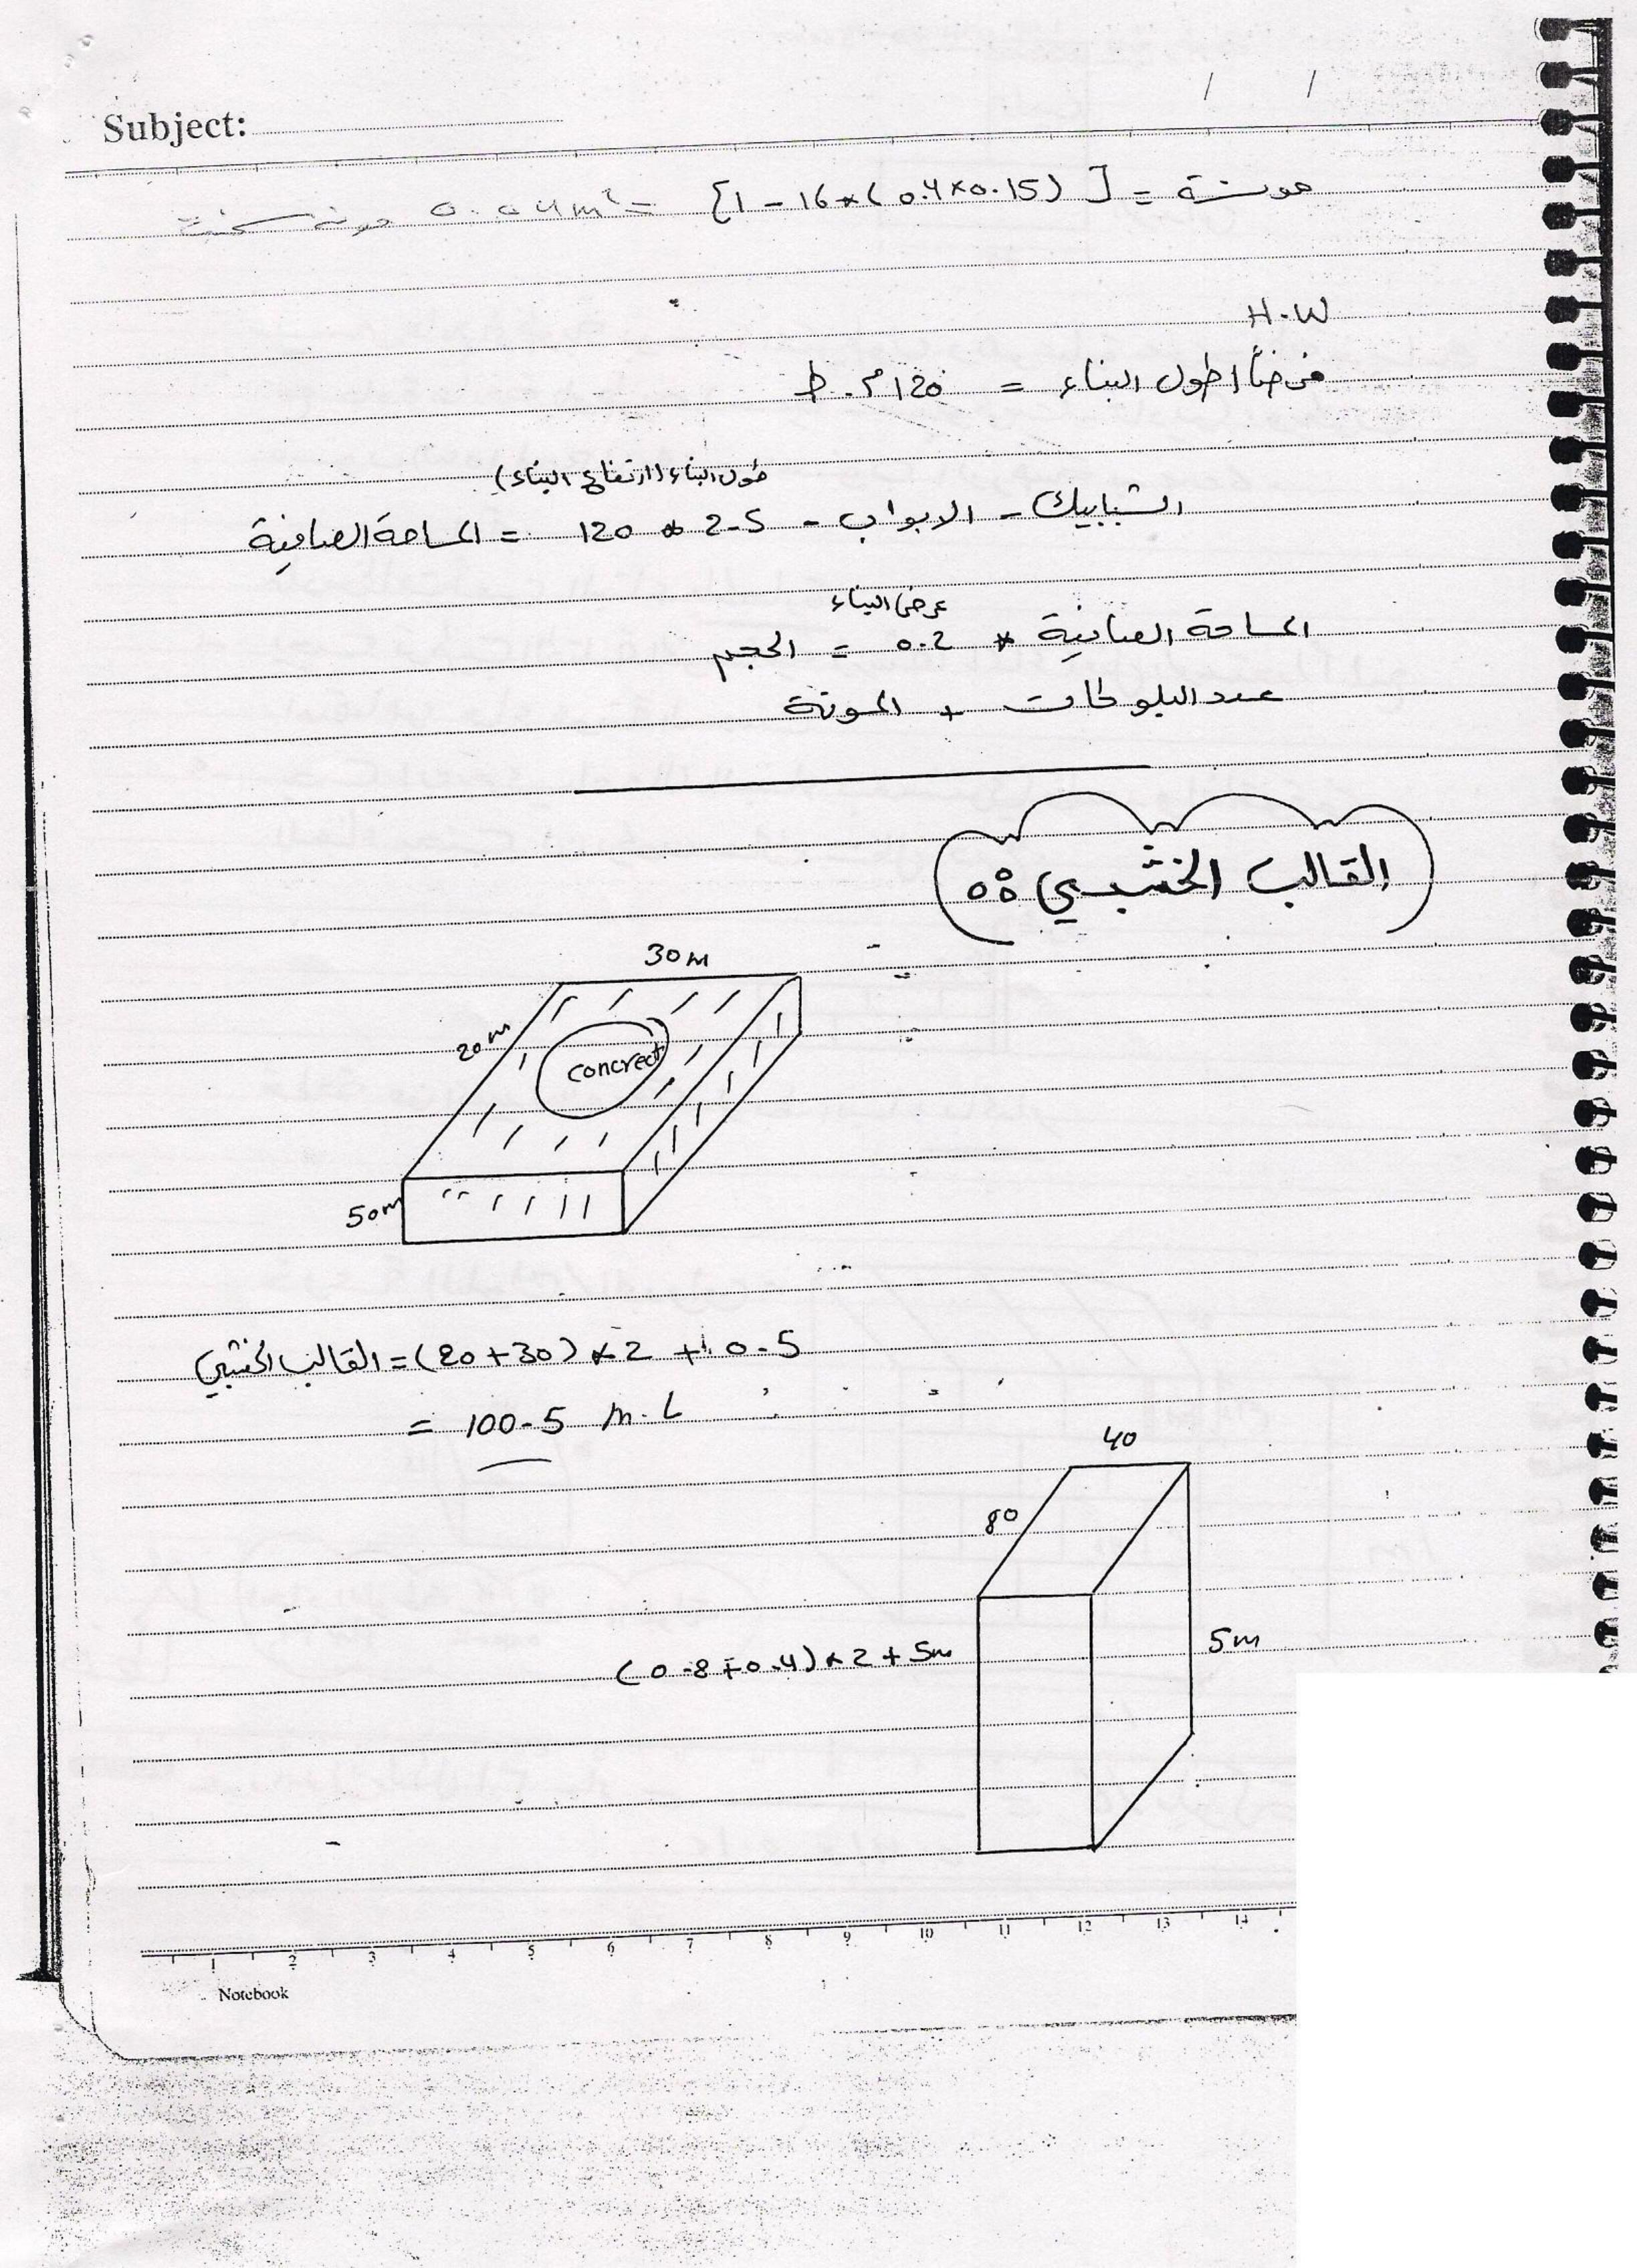 Subject:
مونة = [1 - 16 * (0.4 × 0.15)] = 0.04 m²
H.W
فرضاً طول البناء = 120 م.ط
طول البناء (ارتفاع البناء)
المساحة الصافية = 120 * 2.5 - الابواب - الشبابيك
عرض البناء
المساحة الصافية * 0.2 = الحجم
عدد البلوكات + المونة
القالب الخشبي
30m
20m
concrect
50m
القالب الخشبي = (20+30) × 2 + 0.5
= 100.5 m.L
40
80
5m
(0.8+0.4) × 2 + 5m
1 2 3 4 5 6 7 8 9 10 11 12 13 14
Notebook